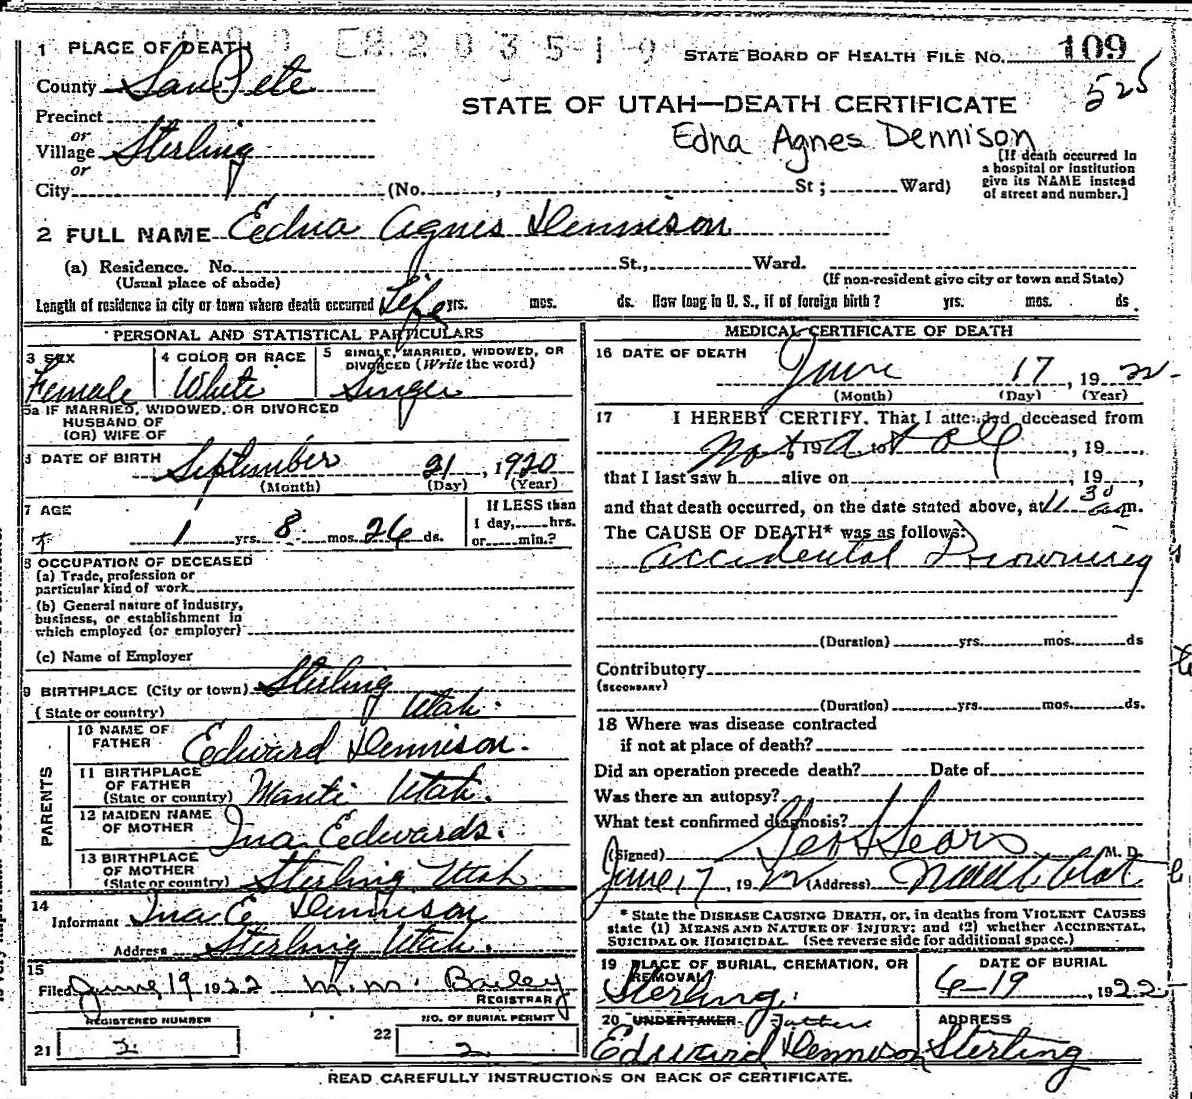 1 PLACE OF DEATH
8203519
STATE BOARD OF HEALTH FILE No. 109
525
County SanPete
STATE OF UTAH—DEATH CERTIFICATE
Precinct
Edna Agnes Dennison
or
Village Sterling
or
[If death occurred in a hospital or institution give its NAME instead of street and number.]
City (No. , St ; Ward)
2 FULL NAME Eedna Agnes Dennison
(a) Residence. No. St., Ward.
(Usual place of abode) (If non-resident give city or town and State)
Length of residence in city or town where death occurred Life yrs. mos. ds. How long in U. S., if of foreign birth? yrs. mos. ds
PERSONAL AND STATISTICAL PARTICULARS
3 SEX
Female
4 COLOR OR RACE
White
5 SINGLE, MARRIED, WIDOWED, OR DIVORCED (Write the word)
Singel
5a IF MARRIED, WIDOWED, OR DIVORCED
HUSBAND OF
(OR) WIFE OF
6 DATE OF BIRTH
September 21, 1920
(Month) (Day) (Year)
7 AGE
1 yrs. 8 mos. 26 ds.
If LESS than
1 day, hrs.
or min.?
8 OCCUPATION OF DECEASED
(a) Trade, profession or
particular kind of work
(b) General nature of industry,
business, or establishment in
which employed (or employer)
(c) Name of Employer
9 BIRTHPLACE (City or town) Sterling
(State or country) Utah.
PARENTS
10 NAME OF FATHER Edward Dennison.
11 BIRTHPLACE OF FATHER (State or country) Manti Utah.
12 MAIDEN NAME OF MOTHER Ina Eedwards.
13 BIRTHPLACE OF MOTHER (State or country) Sterling Utah
14
Informant Ina E Dennison
Address Sterling Utah.
15
Filed June 19 1922 M. M. Bailey
REGISTRAR
REGISTERED NUMBER
21 2
NO. OF BURIAL PERMIT
22 2
MEDICAL CERTIFICATE OF DEATH
16 DATE OF DEATH
June 17, 1922
(Month) (Day) (Year)
17 I HEREBY CERTIFY. That I attended deceased from
Not at all, 19 to , 19 ,
that I last saw h alive on , 19 ,
and that death occurred, on the date stated above, at 11 30 a m.
The CAUSE OF DEATH* was as follows:
Accidental Drowning
(Duration) yrs. mos. ds
Contributory
(SECONDARY)
(Duration) yrs. mos. ds.
18 Where was disease contracted
if not at place of death?
Did an operation precede death? Date of
Was there an autopsy?
What test confirmed diagnosis?
(Signed) Geo Sears M. D.
June 17, 1922 (Address)
* State the DISEASE CAUSING DEATH, or, in deaths from VIOLENT CAUSES
state (1) MEANS AND NATURE OF INJURY; and (2) whether ACCIDENTAL,
SUICIDAL OR HOMICIDAL. (See reverse side for additional space.)
19 PLACE OF BURIAL, CREMATION, OR REMOVAL
Sterling.
DATE OF BURIAL
6-19, 1922
20 UNDERTAKER Father
Edward Dennison
ADDRESS
Sterling
READ CAREFULLY INSTRUCTIONS ON BACK OF CERTIFICATE.